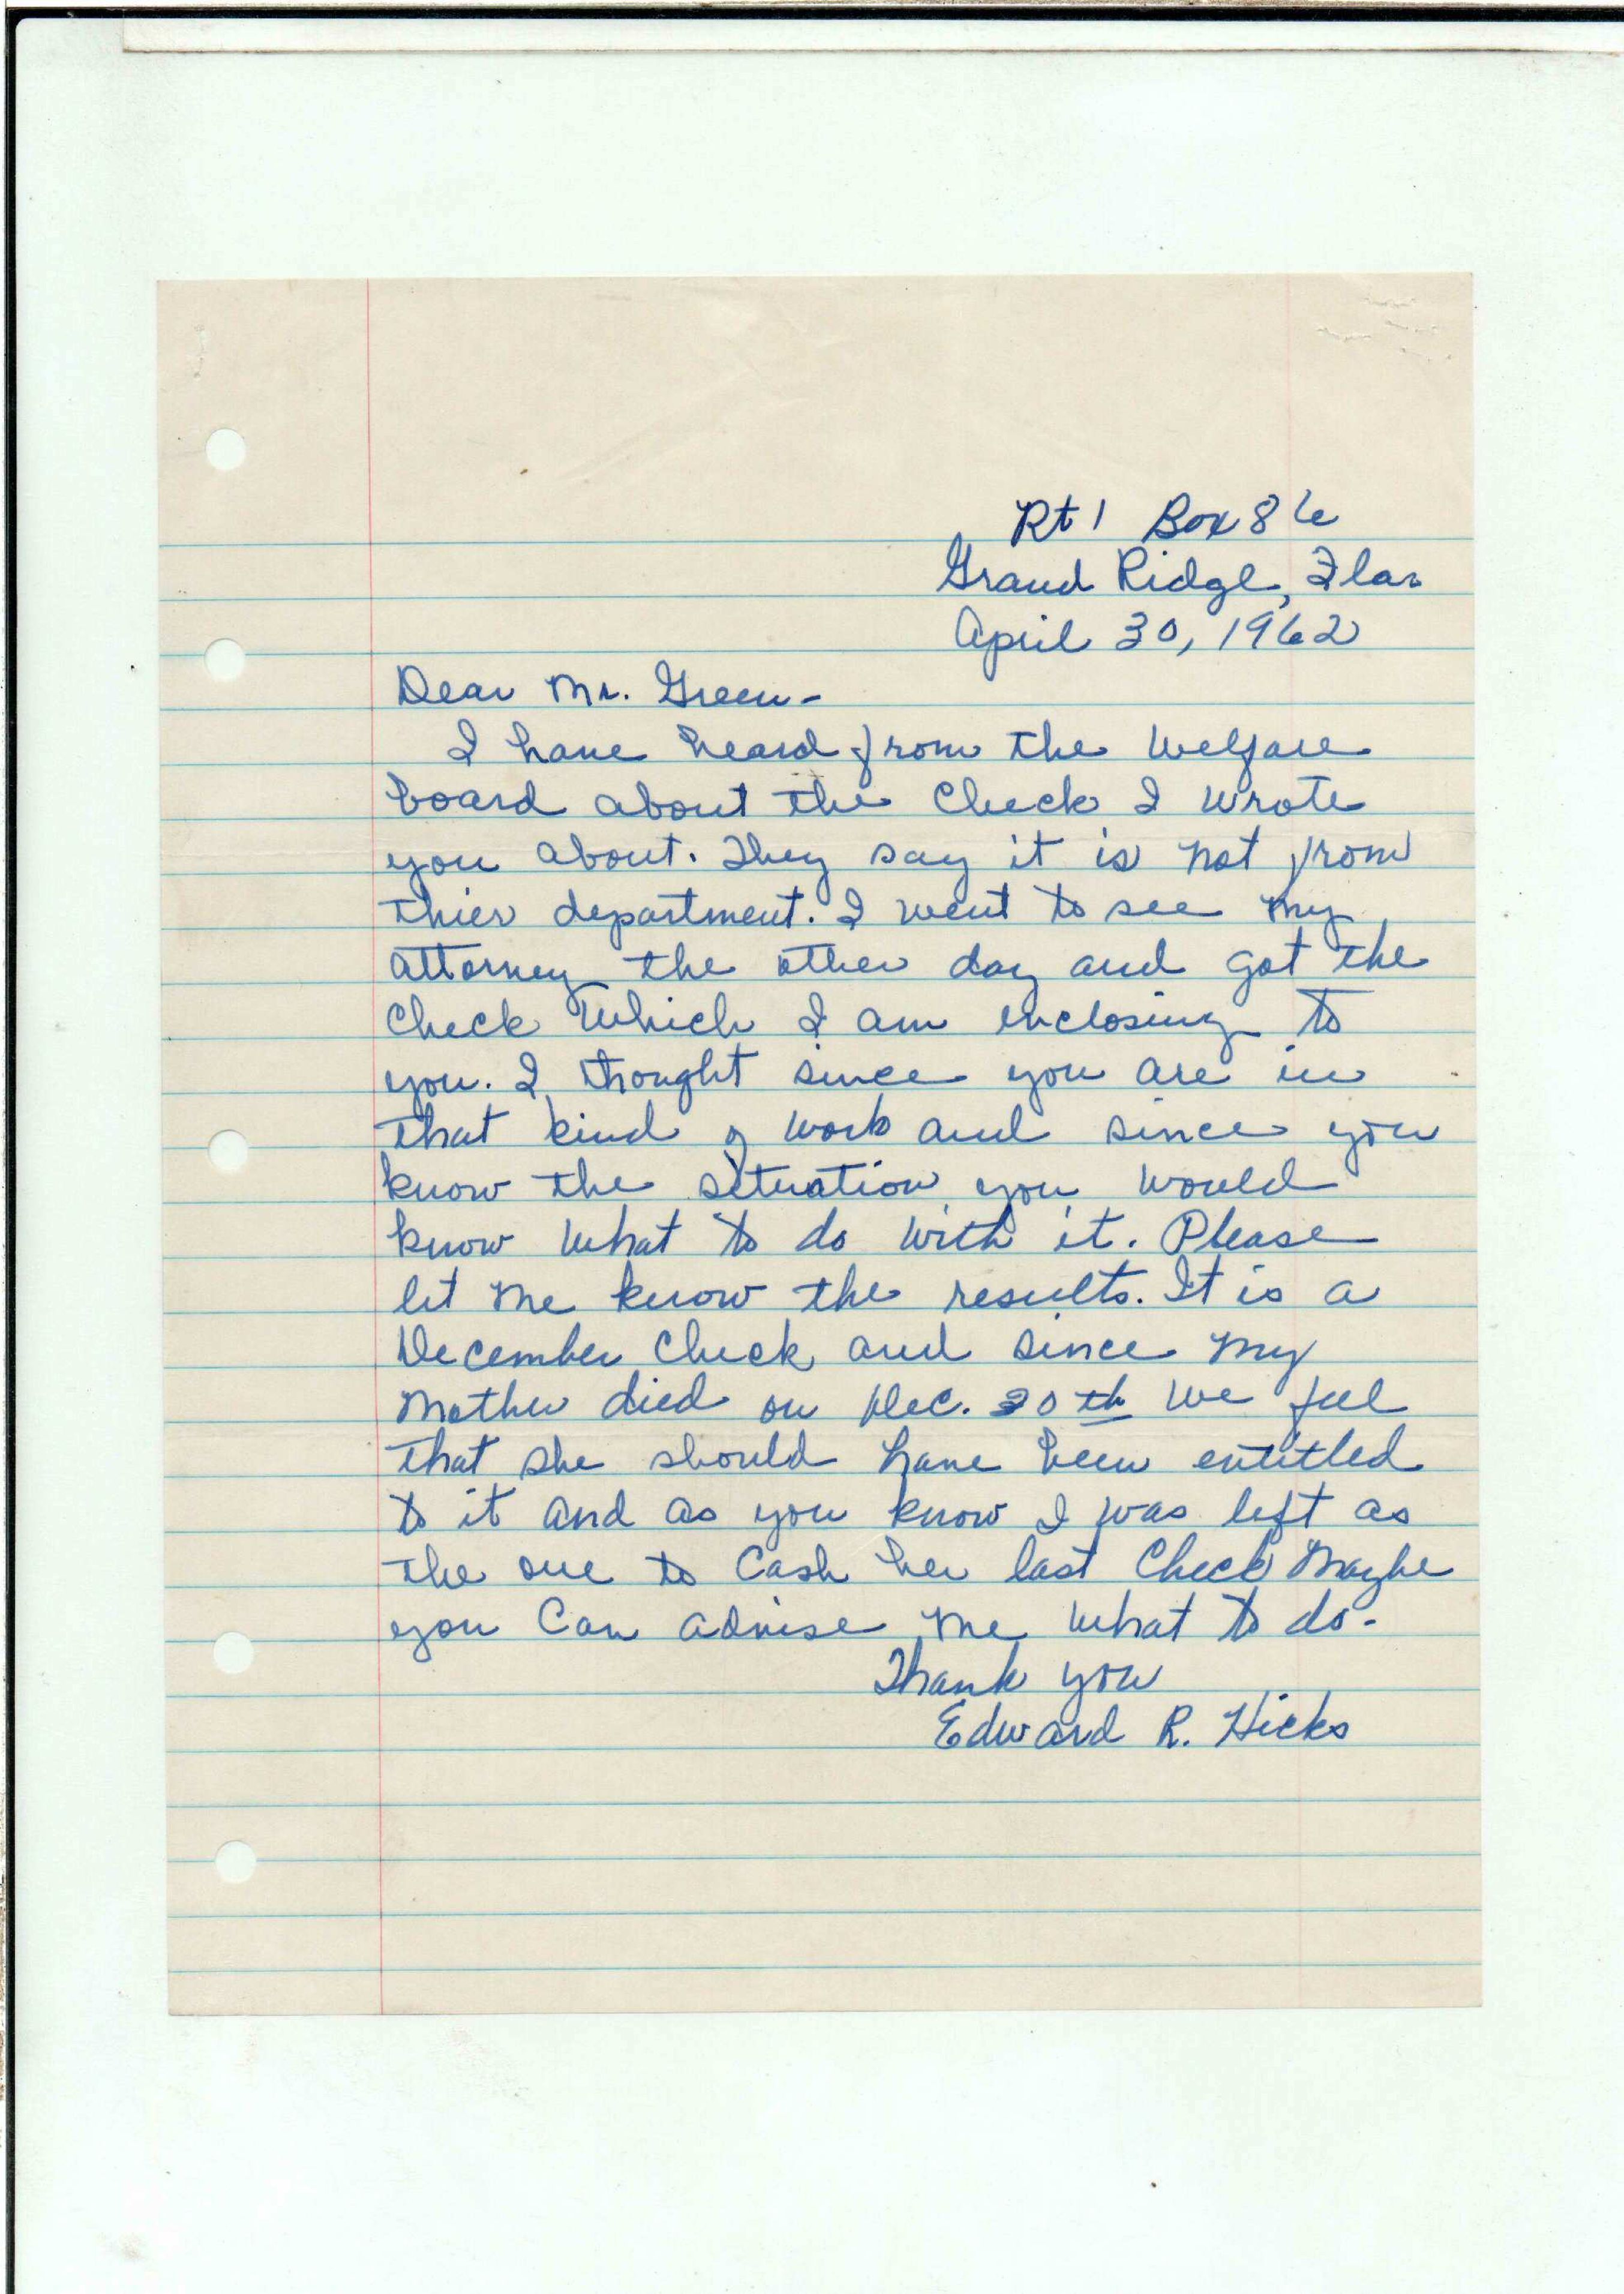 Rt 1 Box 86
Grand Ridge, Fla.
April 30, 1962
Dear Mr. Green-
I have heard from the Welfare
board about the Check I wrote
you about. They say it is not from
thier department. I went to see my
attorney the other day and got the
Check Which I am enclosing to
you. I thought since you are in
that kind of work and since you
know the situation you would
know what to do with it. Please
let me know the results. It is a
December Check and since my
Mother died on Dec. 30th we feel
that she should have been entitled
to it and as you know I was left as
the one to Cash her last Check Maybe
you Can advise me what to do-
Thank you
Edward R. Hicks